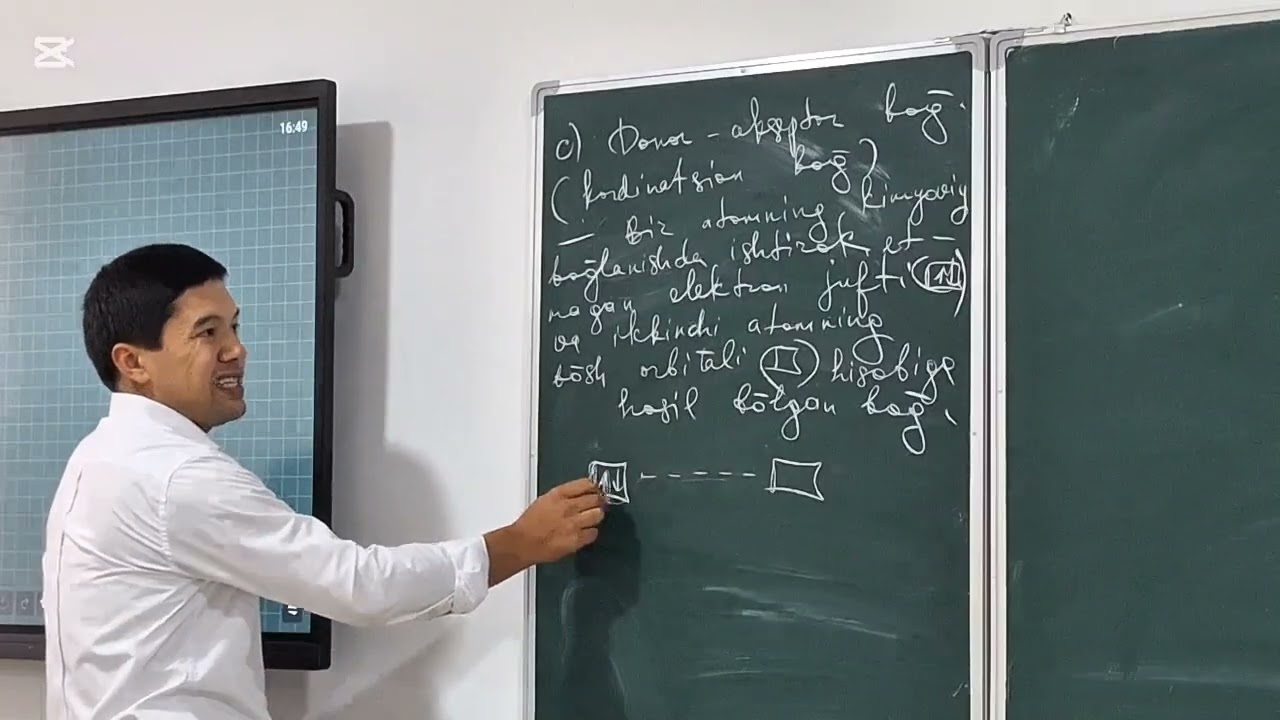 16:49
c) Donor - akseptor boḡ.
(kordinatsion boḡ)
— Bir atomning kimyoviy
boḡlanishda ishtirok et-
magan elektron jufti (↑↓)
va ikkinchi atomning
bōsh orbitali (□) hisobiga
hosil bōlgan boḡ.
↑↓ ----- □